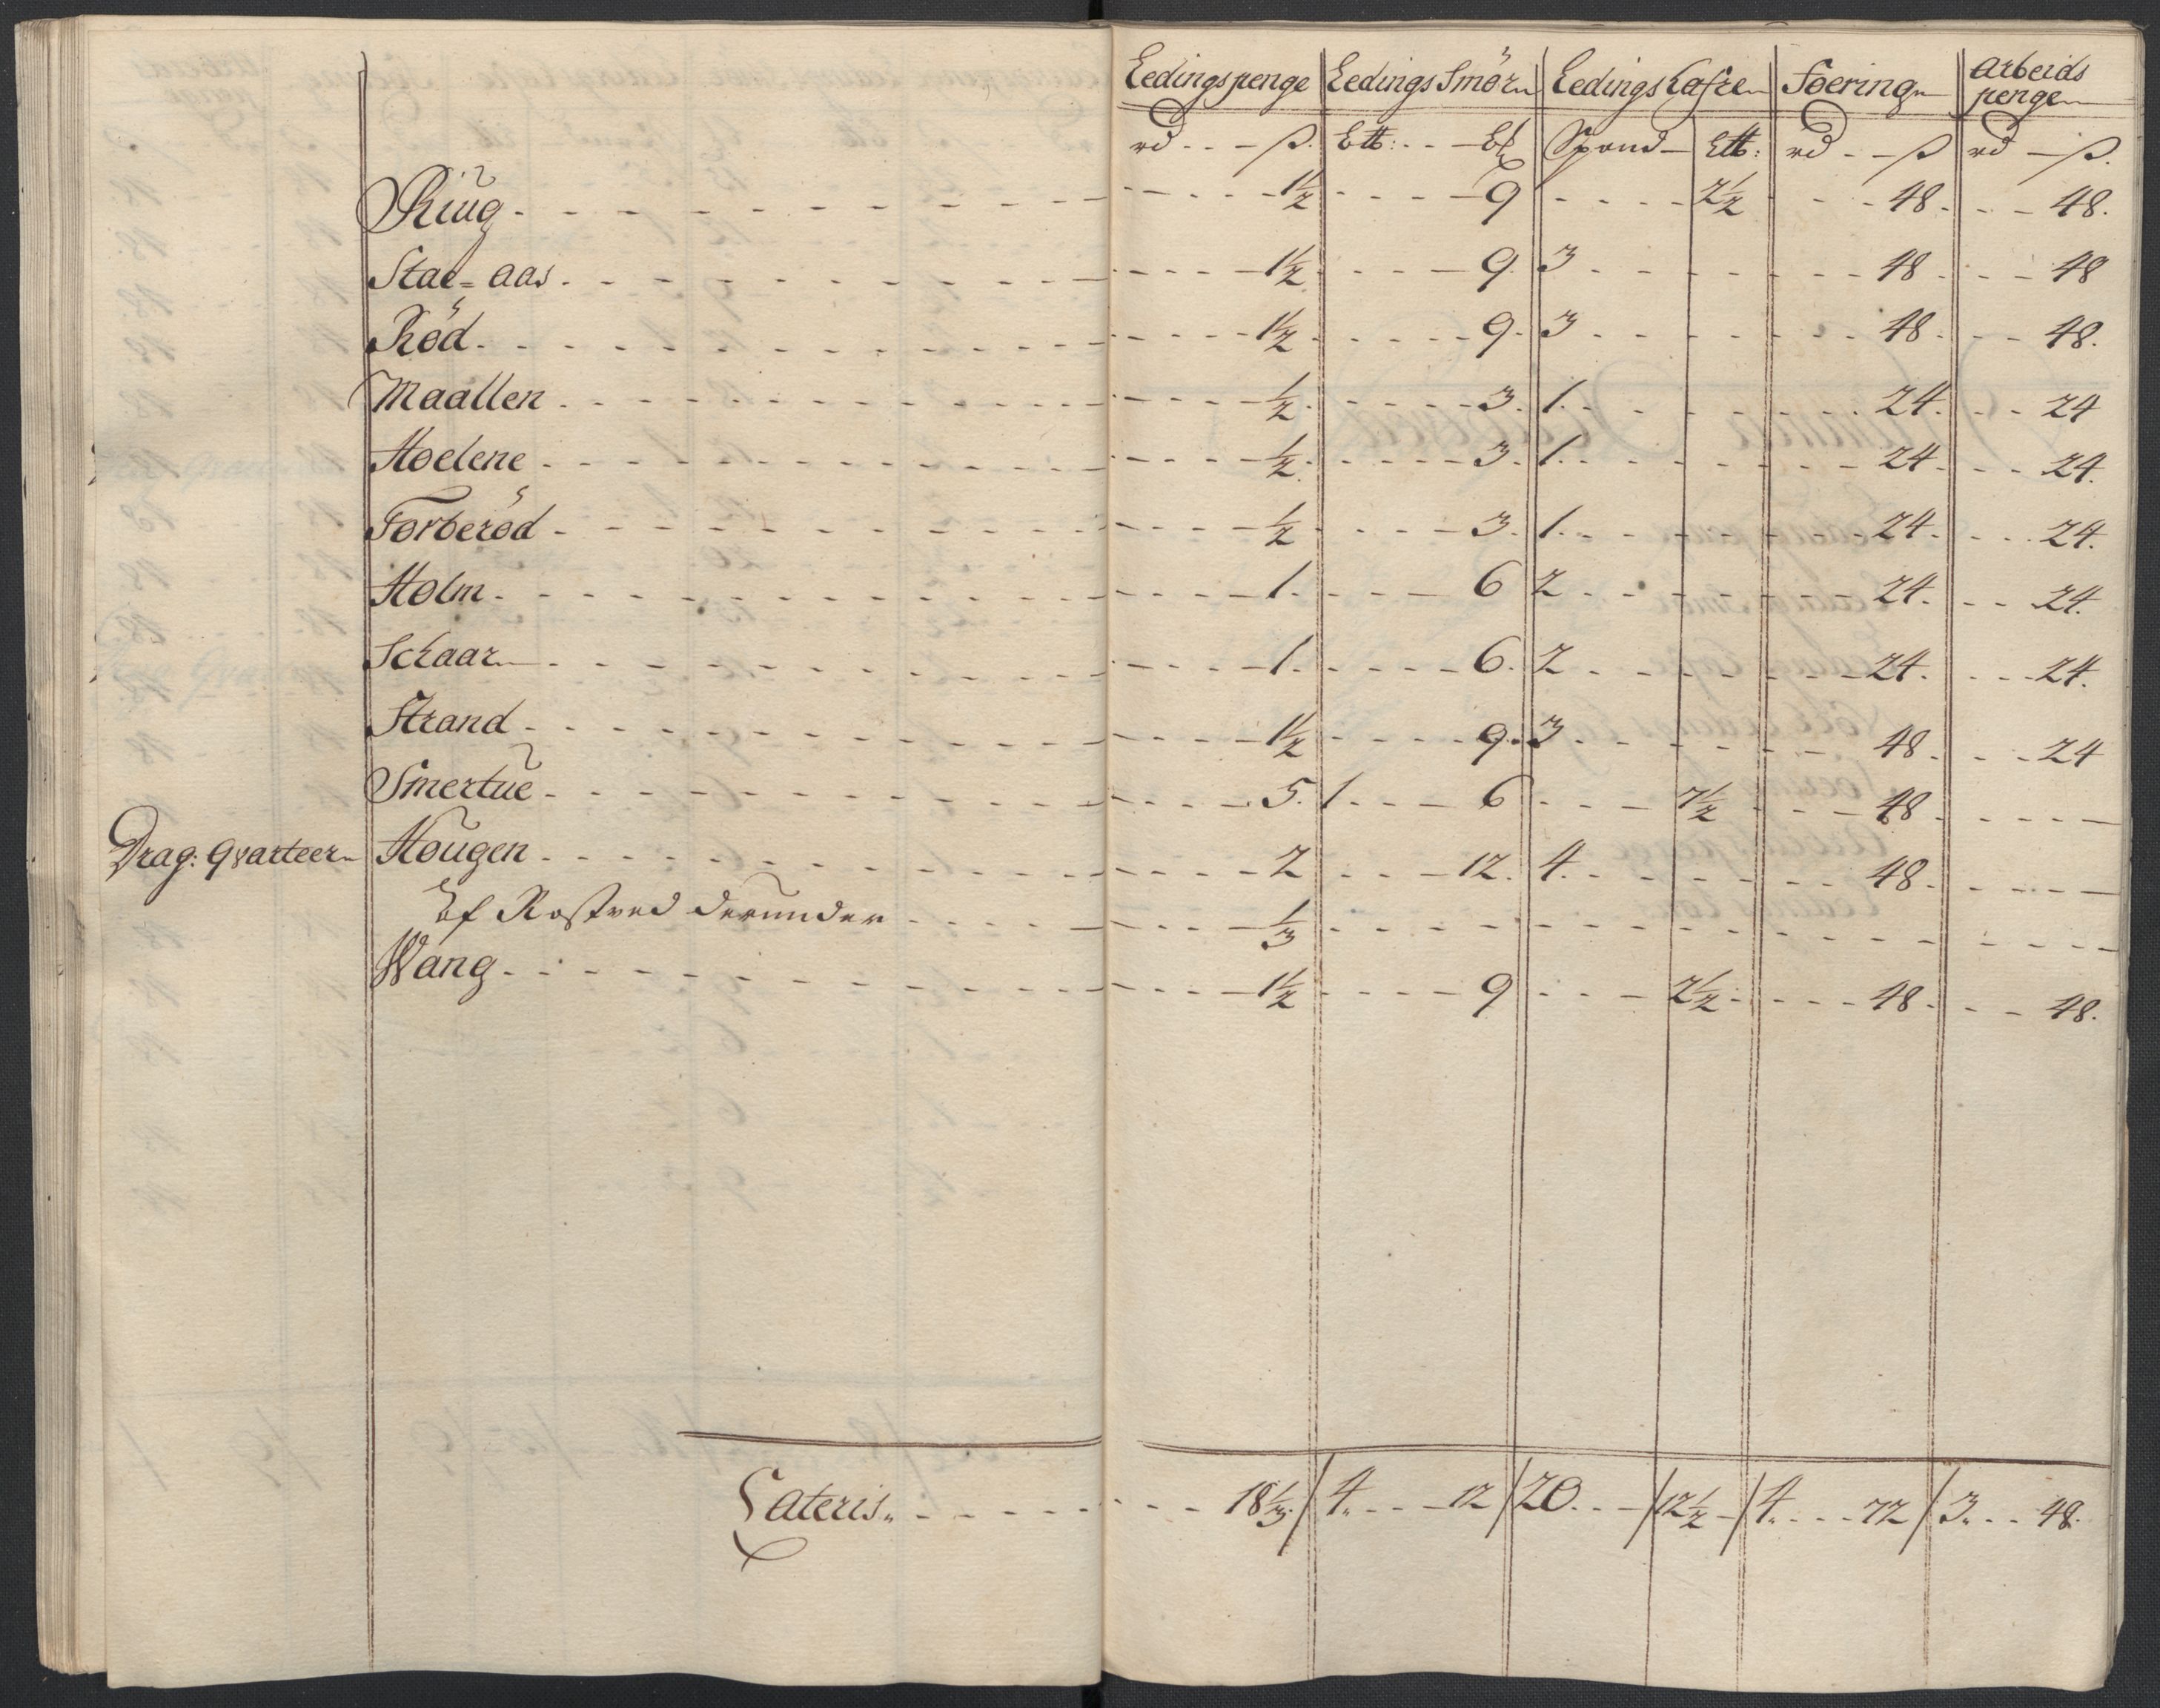 Ledingspenge | Ledings Smör | Ledings Hafre | Foering | Arbeids penge
rd - - - ß. | Ltt: - - - | Spand - | Ltt: | rd - - ß | rd - ß.
Riug - - - 1½ - - - 9 - - - 2½ - - - 48. - - - 48.
Stae=aas - - - 1½ - - - 9. 3 - - - 48 - - - 48
Röd - - - 1½ - - - 9. 3 - - - 48 - - - 48.
Maallen - - - ½ - - - 3. 1. - - - 24. - - - 24
Hoelene - - - ½ - - - 3. 1. - - - 24 - - - 24.
Torberöd - - - ½ - - - 3. 1. - - - 24. - - - 24.
Holm - - - 1. - - - 6 2 - - - 24. - - - 24.
Schaar - - - 1. - - - 6. 2 - - - 24. - - - 24.
Strand - - - 1½ - - - 9. 3 - - - 48 - - - 24
Smertue - - - 5. 1. - - 6 - - - 7½ - - - 48 - - -
Drag: qvarteer Hougen - - - 2 - - - 12. 4. - - - 48. - - -
af Rostved derunder - - - ⅓ - - -
Wang - - - 1½ - - - 9 - - - 2½ - - - 48. - - - 48.
Lateris - - - 18⅓ / 4. - - - 12 / 20. - - / 12½ - / 4. - - - 72 / 3. - - 48.